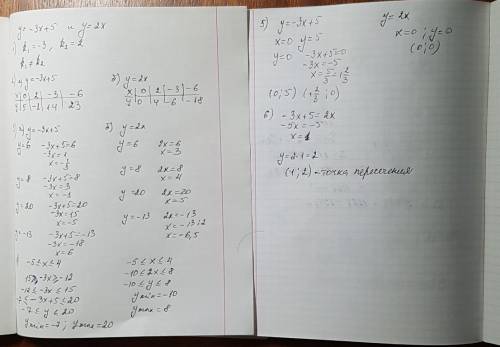 y=-3x+5 и y=2x
1) k₁=-3, k₂=2
k₁≠k₂
y=-3x+5
x|0|2|-3|-6
y|5|-1|14|23
б) y=2x
x|0|2|-3|-6
y|0|4|-6|-18
y=-3x+5
y=6 -3x+5=6
-3x=1
x=-1/3
y=8 -3x+5=8
-3x=3
x=-1
y=20 -3x+5=20
-3x=15
x=-5
y=-13 -3x+5=-13
-3x=-18
x=6
б) y=2x
y=6 2x=6
x=3
y=8 2x=8
x=4
y=20 2x=20
x=5
y=-13 2x=-13
x=-13:2
x=-6,5
-5≤x≤4
15≥-3x≥-12
-12≤-3x≤15
-7≤-3x+5≤20
-7≤y≤20
ymin=-7; ymax=20
-5≤x≤4
-10≤2x≤8
-10≤y≤8
ymin=-10
ymax=8
5) y=-3x+5
x=0 y=5
y=0 -3x+5=0
-3x=-5
x=5/3=1 2/3
(0;5) (1 2/3;0)
y=2x
x=0; y=0
(0;0)
6) -3x+5=2x
-5x=-5
x=1
y=2·1=2
(1;2)-точка пересечения